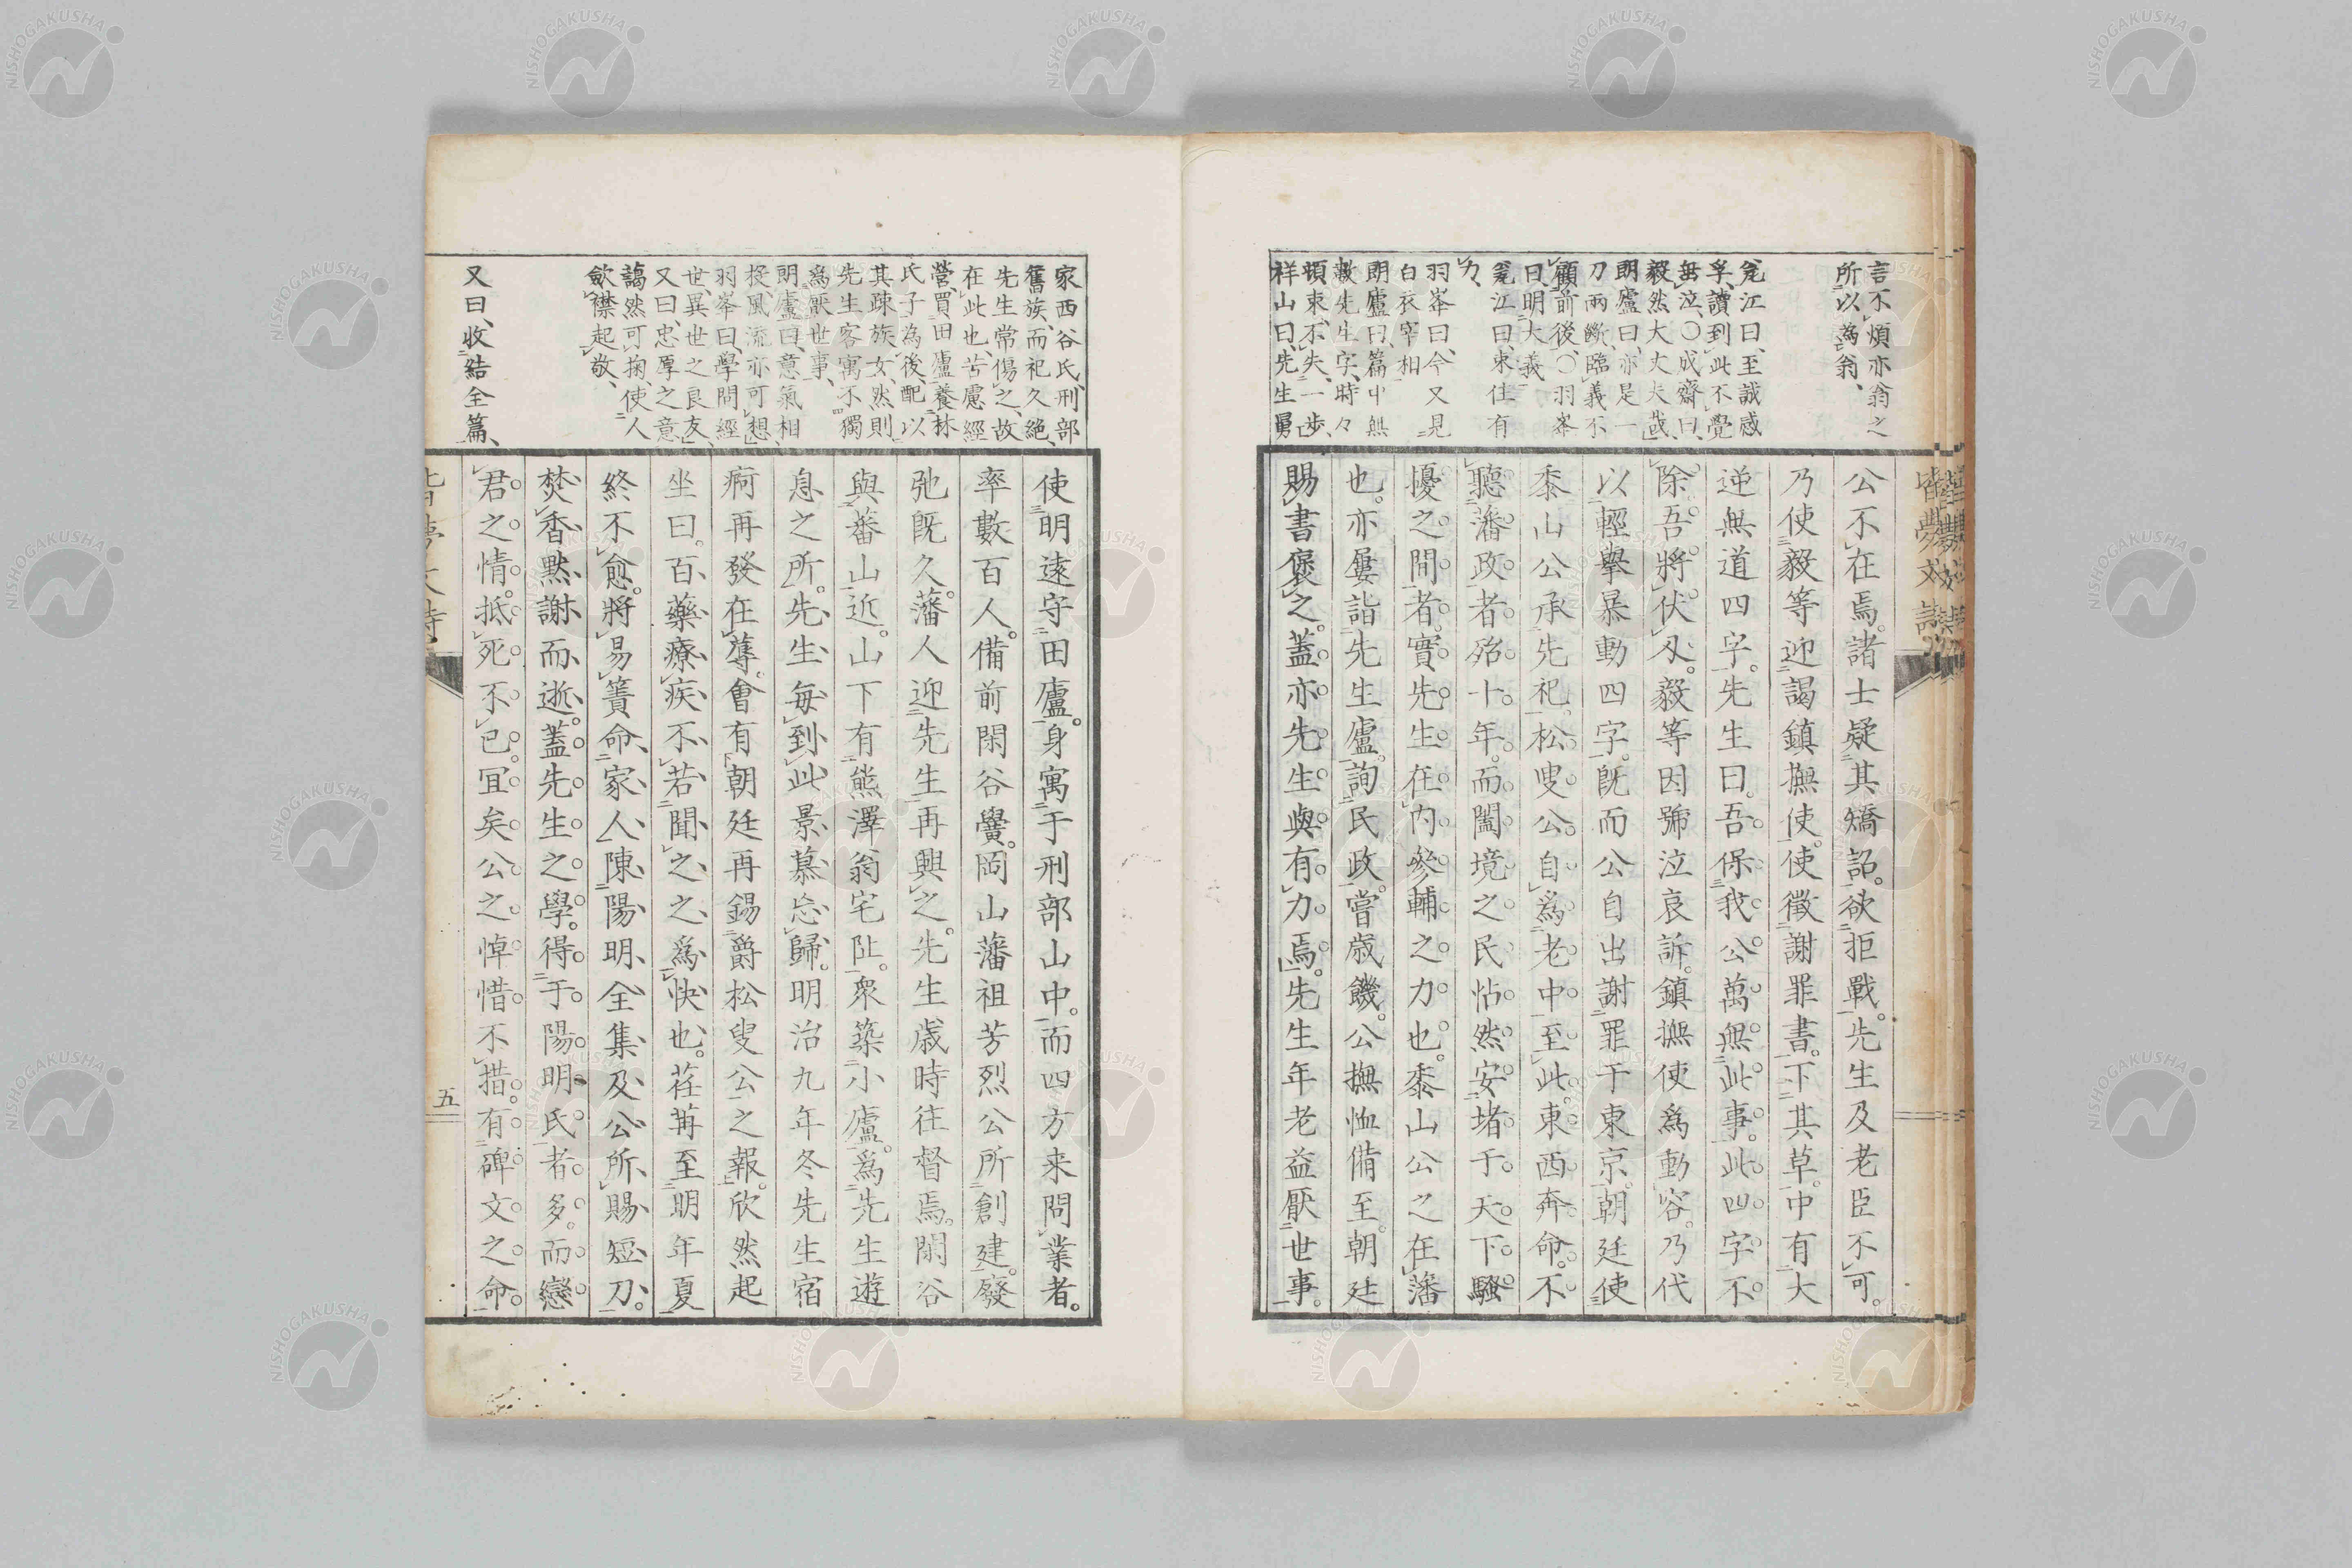 言不煩亦翁之
所以為翁、
翁江曰、至誠感
孚、讀到此不覺
無泣、〇成齋曰、
毅然大丈夫哉、
朗廬曰、亦是一
刀兩斷、臨義不
顧前後、〇羽峯
曰、明大義
翁江曰、東住有
力、
羽峯曰、今又見
白衣宰相
朗廬曰、篇中無
敬先生字、時々
頓束、不失一步、
祥山曰、先生勇
公不在焉。諸士疑其矯詔。欲拒戰。先生及老臣不可。
乃使毅等迎謁鎮撫使。使徵謝罪書。下其草。中有大
逆無道四字。先生曰。吾保我公萬無此事。此四字不
除。吾將伏刃。毅等因號泣哀訴。鎮撫使為動容。乃代
以輕擧暴動四字。既而公自出謝罪于東京。朝廷使
黍山公承先祀。松叟公自為老中至此。東西奔命。不
聽藩政者殆十年。而闔境之民怗然安堵于天下騷
擾之間者。實先生在內參輔之力也。黍山公之在藩
也。亦屢詣先生廬。詢民政。嘗歲饑。公撫恤備至。朝廷
賜書褒之。蓋亦先生與有力焉。先生年老益厭世事。
家西谷氏、刑部
舊族、而祀久絶、
先生常傷之、故
在此也、苦慮經
營、買田廬養林
氏子為後、配以
其疎族女、然則
先生客寓不獨
為厭世事、
朗廬曰、意氣相
投、風流亦可想、
羽峯曰、學問經
世、異世之良友、
又曰、忠厚之意
藹然可掬、使人
歛襟起敬、
又曰、收結全篇、
使明遠守田廬。身寓于刑部山中。而四方来問業者。
率數百人。備前閑谷黌。岡山藩祖芳烈公所創建。廢
弛既久。藩人迎先生再興之。先生歲時往督焉。閑谷
與蕃山近。山下有熊澤翁宅阯。衆築小廬。為先生遊
息之所。先生每到此景慕忘歸。明治九年冬先生宿
痾再發在蓐。會有朝廷再錫爵松叟公之報。欣然起
坐曰。百藥療疾不若聞之之為快也。荏苒至明年夏
終不愈。將易簀命家人陳陽明全集及公所賜短刀。
焚香默謝而逝。蓋先生之學。得于陽明氏者多。而戀
君之情。抵死不已。宜矣公之悼惜不措。有碑文之命。
五